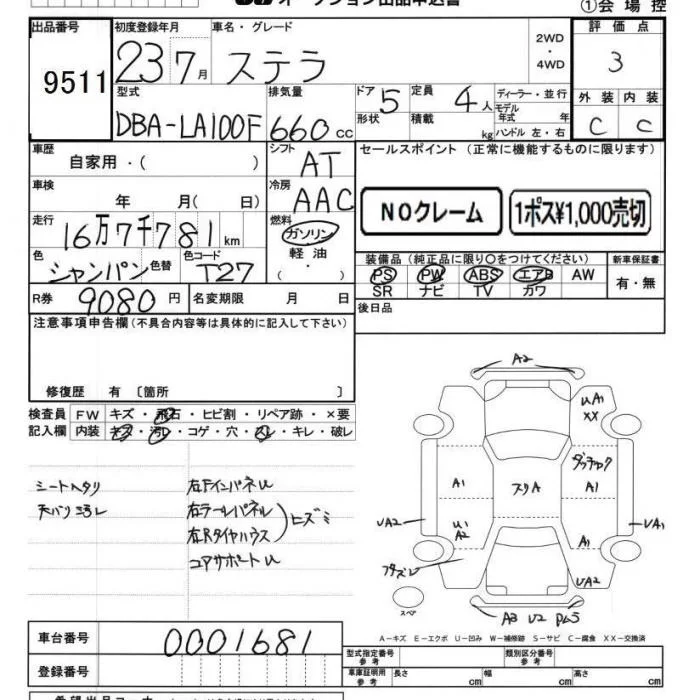 オークション出品申込書
①会場控
出品番号 初度登録年月 車名・グレード 2WD・4WD 評価点
9511 23 7月 ステラ 3
型式 排気量 ドア 定員 ディーラー・並行 外装 内装
DBA-LA100F 660cc 5 4人 モデル年式 年 C C
形状 積載 kg ハンドル 左・右
車歴 自家用・( ) シフト AT セールスポイント (正常に機能するものに限ります)
車検 年 月( 日) 冷房 AAC
NOクレーム 1ポス¥1,000売切
走行 16万7千781km 燃料 ガソリン 軽油 ( ・ )
色 シャンパン 色替 色コード T27
装備品 (純正品に限り○をつけてください) 新車保証書
PS PW ABS エアB AW 有・無
SR ナビ TV カワ
R券 9080円 名変期限 月 日 後日品
注意事項申告欄(不具合内容等は具体的に記入して下さい)
修復歴 有 〔箇所 〕
検査員記入欄 FW キズ・飛石・ヒビ割・リペア跡・×要
内装 キズ・汚レ・コゲ・穴・スレ・キレ・破レ
シートヘタリ 右Fインパネ U
天バリ汚レ 右テールパネル
右Rタイヤハウス ヒズミ
コアサポート U
A2
UA1
XX
ダッチャク
A1 スリA A1
UA2 U1 A2 UA1
A1
フタズレ
UA2
スペア
A3 U2
A-キズ E-エクボ U-凹み W-補修跡 S-サビ C-腐食 XX-交換済
車台番号 0001681
型式指定番号 参考 類別区分番号 参考
登録番号
車庫証明用 参考 長さ cm 幅 cm 高さ cm
希望出品コーナー